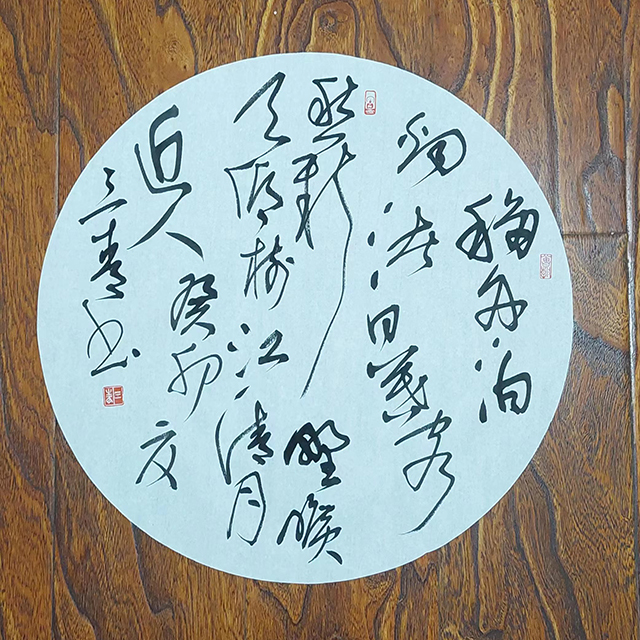 移舟泊
烟渚日暮客
愁新野曠
天低树江清月
近人
癸卯夏
三书